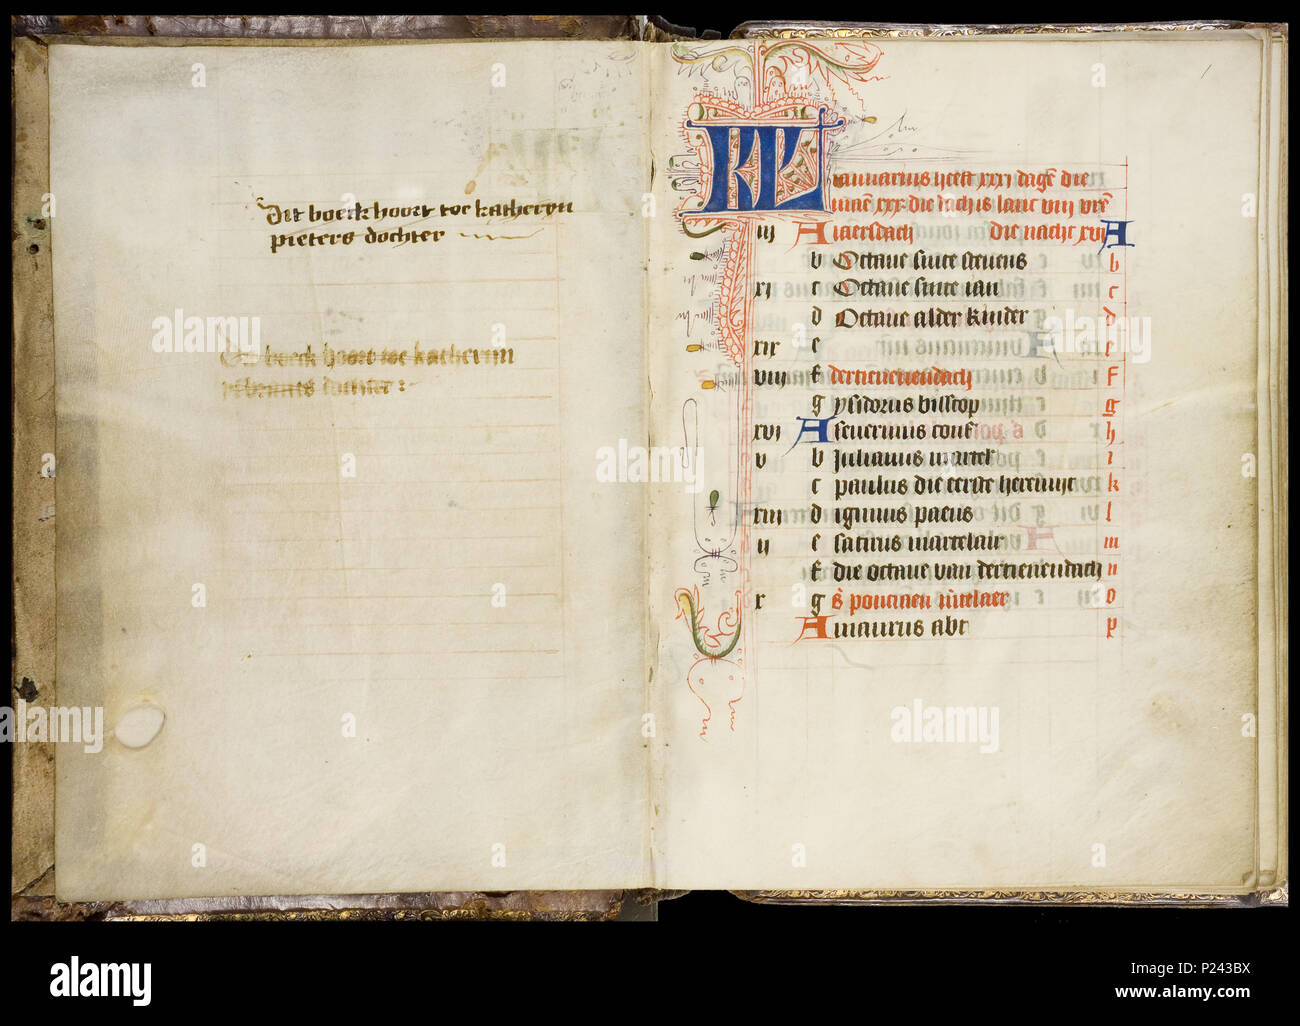 dit boeck hoort toe katheryn
pieters dochter
Dit boeck hoort toe katherynn
1
KL Januarius heeft xxxj dagē die
maē xxx die dach is lanc viij vrē
iij A iaersdach die nacht xvj A
b Octaue sinte steuens b
xj c Octaue sinte ian c
d Octaue alder kinder d
xix e e
viij f dertienendach f
g ysidorus bisscop g
xvj A seuerinus conf h
v b Julianus martel i
c paulus die eerste heremijt k
xiij d iginius paeus l
ij e satirus martelair m
f die octaue van dertienendach n
x g s poncinen mertelaer o
A maurus abt p
alamy
Image ID: P243BX
www.alamy.com